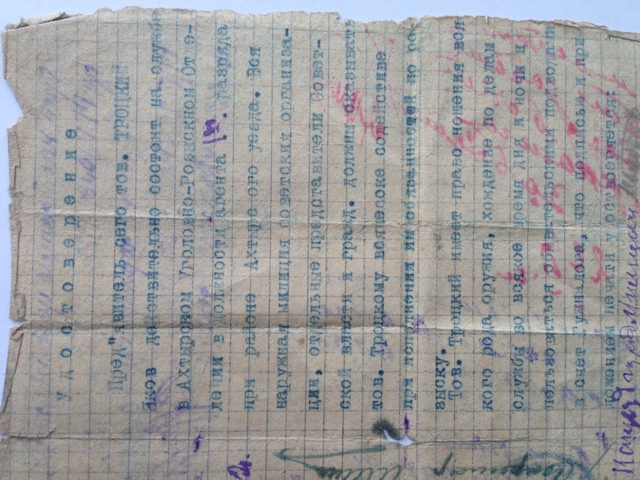 Удостоверение
Пред"явитель сего тов. ТРОЦКИЙ
Яков действительно состоит на службе
в Ахтырском Уголовно-Розыскном Отде-
лении в должности агента разряда
при районе Ахтырского уезда. Вся
наружная милиция советския организа-
ции, отдельные представители Совет-
ской власти и гражд. должны оказывать
тов. Троцкому всяческое содействие
при исполнении им обязанностей по ро-
зыску.
Тов. Троцкий имеет право ношения вся
кого рода оружия, хождение по делам
службы во всякое время дня и ночи и
пользоваться обывательскими подводами
в счет что подписью и при-
ложением печати удостоверяется: